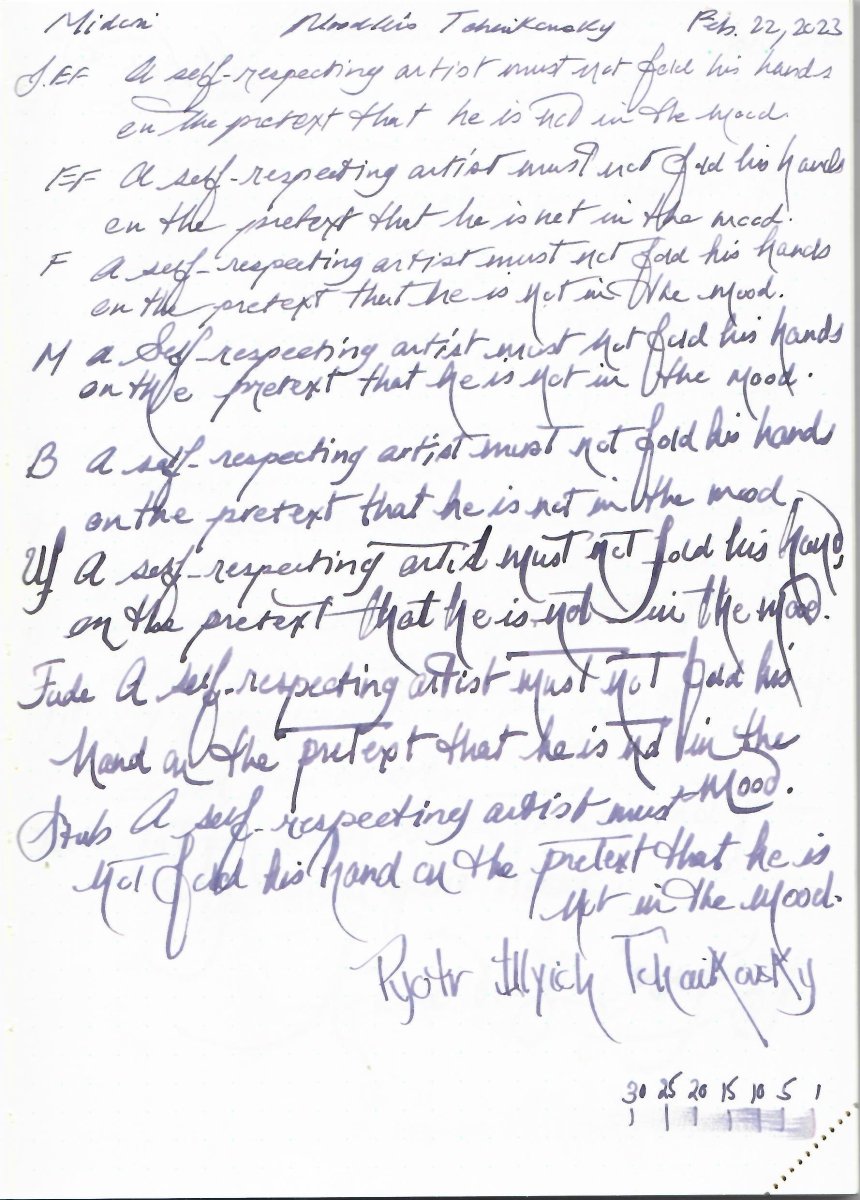 Midori Noodler's Tchaikovsky Feb. 22, 2023
J. EF A self-respecting artist must not fold his hands
on the pretext that he is not in the mood.
EF A self-respecting artist must not fold his hands
on the pretext that he is not in the mood.
F A self-respecting artist must not fold his hands
on the pretext that he is not in the mood.
M a Self-respecting artist must not fold his hands
on the pretext that he is not in the mood.
B A self-respecting artist must not fold his hands
on the pretext that he is not in the mood.
A self-respecting artist must not fold his hands
on the pretext that he is not in the mood.
Fude A self-respecting artist must not fold his
hand on the pretext that he is not in the
mood.
Stub A self-respecting artist must
not fold his hand on the pretext that he is
not in the mood.
Pyotr Illyich Tchaikovsky
30 25 20 15 10 5 1